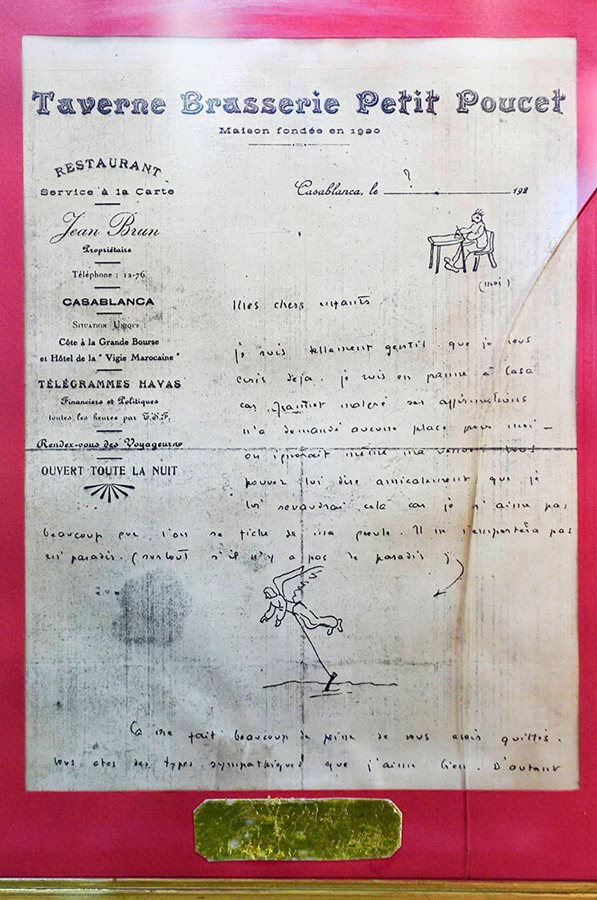 Taverne Brasserie Petit Poucet
Maison fondée en 1920
RESTAURANT
Service à la Carte
Jean Brun
Propriétaire
Téléphone : 12-76
CASABLANCA
Situation Unique :
Côte à la Grande Bourse
et Hôtel de la "Vigie Marocaine"
TÉLÉGRAMMES HAVAS
Financiers et Politiques
toutes les heures par T.S.F.
Rendez-vous des Voyageurs
OUVERT TOUTE LA NUIT
Casablanca, le ? 192
(moi)
Mes chers enfants
je suis tellement gentil que je vous
écris déjà. je suis en panne à Casa
car malgré ses affirmations
n'a demandé aucune place pour moi —
on ignorait même ma venue. Vous
pouvez lui dire amicalement que je
lui revaudrai cela car je n'aime pas
beaucoup que l'on se fiche de ma gueule. Il ne l'emportera pas
en paradis. (surtout s'il n'y a pas de paradis)
Ca me fait beaucoup de peine de vous avoir quittés.
Vous etes des types sympathiques que j'aime bien. D'autant